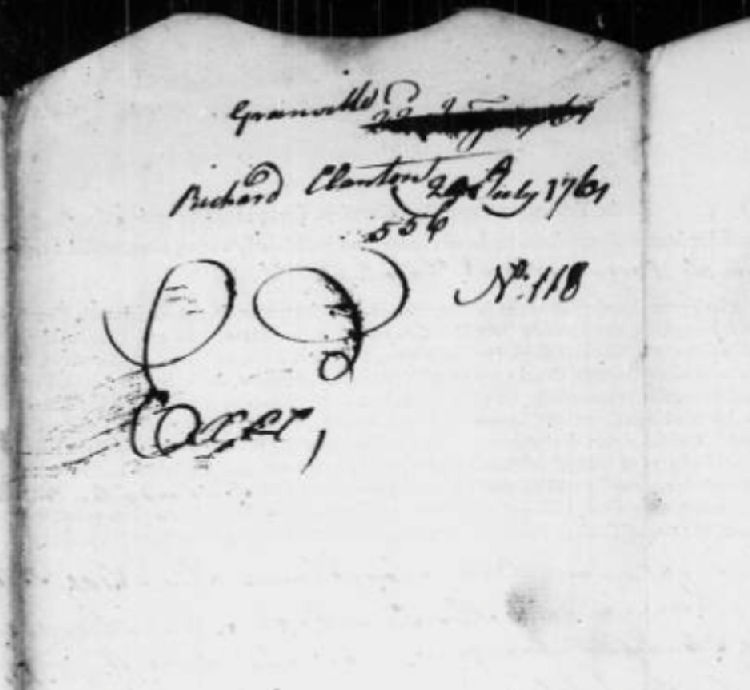 Granville
Richard Clanton 24 July 1761
556
No. 118
Exr,